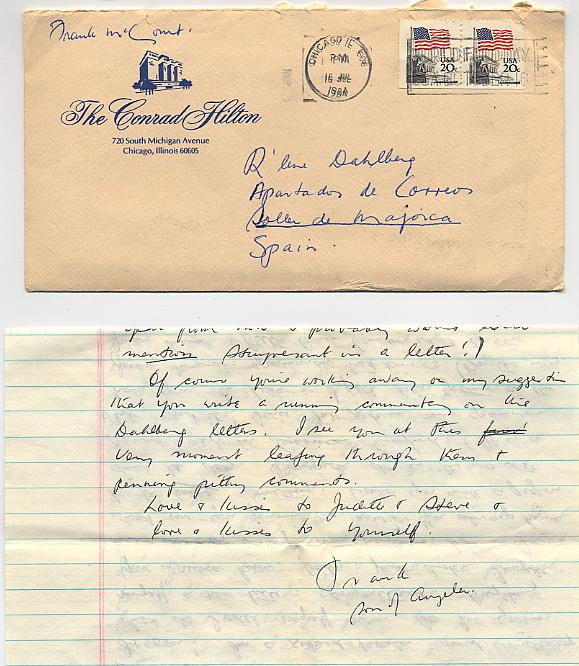 Frank McCourt.
The Conrad Hilton
720 South Michigan Avenue
Chicago, Illinois 60605
CHICAGO IL 606
PM
16 JUL
1984
USA 20c
USA 20c
R'lene Dahlberg
Apartados de Correos
Soller de Majorca
Spain.
probably
mention Stuyvesant in a letter!)
Of course you're working away on my suggestion
that you write a running commentary on the
Dahlberg letters. I see you at this
very moment leafing through them &
penning pithy comments.
Love & kisses to Judith & Steve &
love & kisses to yourself.
Frank
son of Angela.